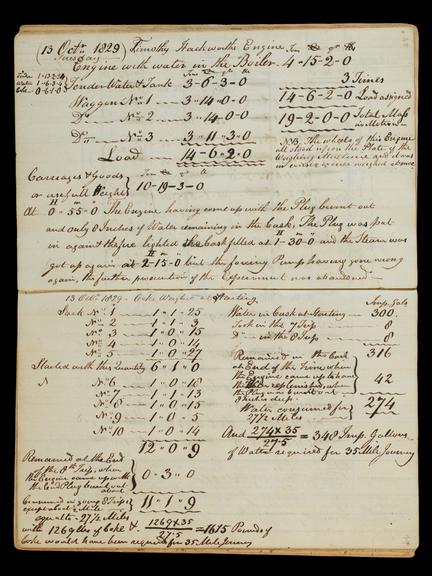 13 Octr 1829 Timothy Hackworths Engine Ton Cwt qr lb
Tuesday
Engine with water in the Boiler 4-15-2-0
3 Times
14-6-2-0 Load assigned
19-2-0-0 Total Mass in Motion
NB. The wheels of this Engine
all stood upon the Plate of the
Weighing Machine and it was
weighed at once
Tender
Water 1-6-3-4
Coke 0-6-1-0
Ton Cwt qr lb
Tender Water & Tank 3-6-3-0
Waggon No. 1 3-14-0-0
Do No. 2 3-14-0-0
Do No. 3 3-11-3-0
Load 14-6-2-0
Carriages & Goods
or useful Weight 10-19-3-0
At 0-55-0 The Engine having come up with the Plug burnt out
and only 8 Inches of Water remaining in the Cask, The Plug was put
in again the fire lighted the Cask filled at 1-30-0 and the Steam was
got up again at 2-15-0 but the forcing Pump having gone wrong
again, the further prosecution of the Experiment was abandoned
13 Octr 1829 - Coke Weighed at Starting
Sack No. 1 1 " 1 - 25
No. 2 1 " 1 " 3
No. 3 1 " 0 " 15
No. 4 1 " 0 " 14
No. 5 1 " 0 " 27
Started with this Quantity 6 " 1 " 0
N
No. 6 1 " 0 - 18
No. 7 1 " 1 - 13
1 " 0 - 15
No. 9 1 " 0 - 5
No. 10 1 " 0 - 14
12 " 0 " 9
Remained at the End
of the 8th Trip, when
the Engine came up with
the Lead Plug burnt out
0 " 3 " 0
Consumed in going 8 Trips
except about 1/2 Mile
11 " 1 " 9
equal to 27 1/2 Miles
with 1269 lbs of Coke & 1269 x 35 / 27.5 = 1615 Pounds of
Coke would have been required for 35 Mile Journey
Imp. Gals
Water in Cask at Starting 300.
Took in the 7 Trip 8
Do in the 8 Trip 8
316
Remained in the Cask
at End of the Trip, when
the Engine came up to have
the Water replenished, when
the Plug was burnt out
8 Inches deep
42
Water consumed for
27 1/2 Miles
274
And 274 x 35 / 27.5 = 348 Imp. Gallons
of Water required for 35 Mile Journey